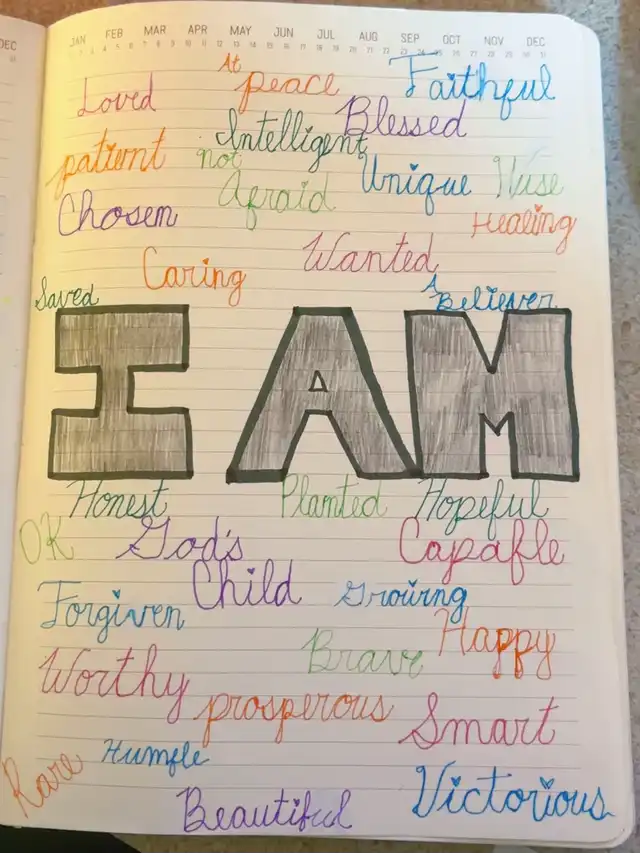 DEC
JAN FEB MAR APR MAY JUN JUL AUG SEP OCT NOV DEC
At peace
Faithful
Loved
Blessed
Intelligent
patient
not Afraid
Unique
Wise
Chosen
Healing
Wanted
Caring
Saved
A Believer
I AM
Honest
Planted
Hopeful
OK
God's Child
Capable
Forgiven
Growing
Happy
Brave
Worthy
prosperous
Smart
Rare
Humble
Beautiful
Victorious